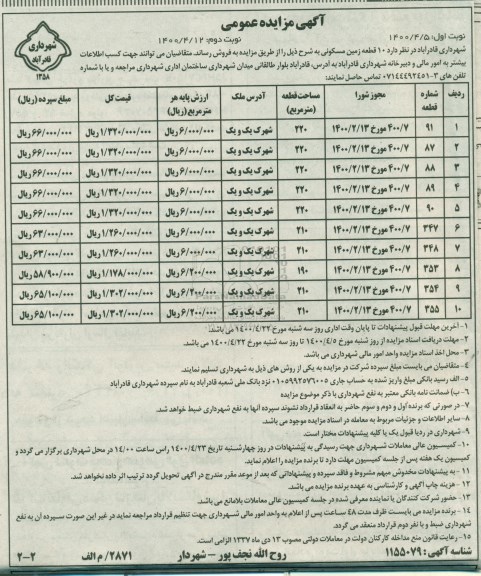 آگهی مزایده عمومی
نوبت اول: ۱۴۰۰/۴/۵
نوبت دوم: ۱۴۰۰/۴/۱۲
شهرداری
قادرآباد
۱۳۵۸
شهرداری قادرآباد در نظر دارد ۱۰ قطعه زمین مسکونی به شرح ذیل را از طریق مزایده به فروش رساند. متقاضیان می توانند جهت کسب اطلاعات
بیشتر به امور مالی و دبیرخانه شهرداری قادرآباد به آدرس، قادرآباد بلوار طالقانی میدان شهرداری ساختمان اداری شهرداری مراجعه و یا با شماره
تلفن های ۳-۰۷۱۴۴۴۹۲۴۵۱ تماس حاصل نمایند:
ردیف | شماره قطعه | مجوز شورا | مساحت قطعه (مترمربع) | آدرس ملک | ارزش پایه هر مترمربع (ریال) | قیمت کل | مبلغ سپرده (ریال)
۱ | ۹۱ | ۴۰۰/۷ مورخ ۱۴۰۰/۲/۱۳ | ۲۲۰ | شهرک یک و یک | ۶/۰۰۰/۰۰۰ ریال | ۱/۳۲۰/۰۰۰/۰۰۰ ریال | ۶۶/۰۰۰/۰۰۰ ریال
۲ | ۸۷ | ۴۰۰/۷ مورخ ۱۴۰۰/۲/۱۳ | ۲۲۰ | شهرک یک و یک | ۶/۰۰۰/۰۰۰ ریال | ۱/۳۲۰/۰۰۰/۰۰۰ ریال | ۶۶/۰۰۰/۰۰۰ ریال
۳ | ۸۸ | ۴۰۰/۷ مورخ ۱۴۰۰/۲/۱۳ | ۲۲۰ | شهرک یک و یک | ۶/۰۰۰/۰۰۰ ریال | ۱/۳۲۰/۰۰۰/۰۰۰ ریال | ۶۶/۰۰۰/۰۰۰ ریال
۴ | ۸۹ | ۴۰۰/۷ مورخ ۱۴۰۰/۲/۱۳ | ۲۲۰ | شهرک یک و یک | ۶/۰۰۰/۰۰۰ ریال | ۱/۳۲۰/۰۰۰/۰۰۰ ریال | ۶۶/۰۰۰/۰۰۰ ریال
۵ | ۹۰ | ۴۰۰/۷ مورخ ۱۴۰۰/۲/۱۳ | ۲۲۰ | شهرک یک و یک | ۶/۰۰۰/۰۰۰ ریال | ۱/۳۲۰/۰۰۰/۰۰۰ ریال | ۶۶/۰۰۰/۰۰۰ ریال
۶ | ۳۴۷ | ۴۰۰/۷ مورخ ۱۴۰۰/۲/۱۳ | ۲۱۰ | شهرک یک و یک | ۶/۰۰۰/۰۰۰ ریال | ۱/۲۶۰/۰۰۰/۰۰۰ ریال | ۶۳/۰۰۰/۰۰۰ ریال
۷ | ۳۴۸ | ۴۰۰/۷ مورخ ۱۴۰۰/۲/۱۳ | ۲۱۰ | شهرک یک و یک | ۶/۰۰۰/۰۰۰ ریال | ۱/۲۶۰/۰۰۰/۰۰۰ ریال | ۶۳/۰۰۰/۰۰۰ ریال
۸ | ۳۵۳ | ۴۰۰/۷ مورخ ۱۴۰۰/۲/۱۳ | ۱۹۰ | شهرک یک و یک | ۶/۲۰۰/۰۰۰ ریال | ۱/۱۷۸/۰۰۰/۰۰۰ ریال | ۵۸/۹۰۰/۰۰۰ ریال
۹ | ۳۵۴ | ۴۰۰/۷ مورخ ۱۴۰۰/۲/۱۳ | ۲۱۰ | شهرک یک و یک | ۶/۲۰۰/۰۰۰ ریال | ۱/۳۰۲/۰۰۰/۰۰۰ ریال | ۶۵/۱۰۰/۰۰۰ ریال
۱۰ | ۳۵۵ | ۴۰۰/۷ مورخ ۱۴۰۰/۲/۱۳ | ۲۱۰ | شهرک یک و یک | ۶/۲۰۰/۰۰۰ ریال | ۱/۳۰۲/۰۰۰/۰۰۰ ریال | ۶۵/۱۰۰/۰۰۰ ریال
۱- آخرین مهلت قبول پیشنهادات تا پایان وقت اداری روز سه شنبه مورخ ۱۴۰۰/۴/۲۲ می باشد.
۲- مهلت دریافت اسناد مزایده از روز شنبه مورخ ۱۴۰۰/۴/۵ تا روز سه شنبه مورخ ۱۴۰۰/۴/۲۲ می باشد.
۳- محل اخذ اسناد مزایده واحد امور مالی شهرداری می باشد.
۴- متقاضیان می بایست مبلغ سپرده شرکت در مزایده به یکی از روش های ذیل به شهرداری تسلیم نمایند.
۵- الف رسید بانکی مبلغ واریز شده به حساب جاری ۰۱۰۵۹۹۲۵۷۶۰۰۵ نزد بانک ملی شعبه قادرآباد به نام سپرده شهرداری قادرآباد
۶- ب) ضمانت نامه بانکی معتبر به نفع شهرداری با ذکر موضوع مزایده
۷- در صورتی که برنده اول و دوم و سوم حاضر به انعقاد قرارداد نشوند سپرده آنها به نفع شهرداری ضبط خواهد شد.
۸- سایر اطلاعات و جزئیات مربوط به معامله در اسناد مزایده موجود می باشد.
۹- شهرداری در رد یا قبول یک یا کلیه پیشنهادات مختار است.
۱۰- کمیسیون عالی معاملات شهرداری جهت رسیدگی به پیشنهادات در روز چهارشنبه تاریخ ۱۴۰۰/۴/۲۳ راس ساعت ۱۴/۰۰ در محل شهرداری برگزار می گردد و
کمیسیون یک هفته پس از جلسه کمیسیون مهلت دارد تا برنده مزایده را اعلام نماید.
۱۱- به پیشنهادات مخدوش مبهم مشروط و فاقد سپرده و پیشنهاداتی که بعد از موعد مقرر مندرج در آگهی تحویل گردد ترتیب اثر داده نخواهد شد.
۱۲- هزینه چاپ آگهی و کارشناسی به عهده برنده مزایده می باشد.
۱۳- حضور شرکت کنندگان یا نماینده معرفی شده در جلسه کمیسیون عالی معاملات بلامانع می باشد.
۱۴- برنده مزایده می بایست ظرف مدت ۴۸ ساعت پس از اعلام به واحد امور مالی شهرداری جهت تنظیم قرارداد مراجعه نماید در غیر این صورت سپرده آن به نفع
شهرداری ضبط و با نفر دوم قرارداد منعقد می گردد.
۱۵- رعایت قانون منع مداخله کارکنان دولت در معاملات دولتی مصوب ۱۳ دی ماه ۱۳۳۷ الزامی است.
شناسه آگهی: ۱۱۵۵۰۷۹
روح الله نجف پور - شهردار
۲۸۷۱/م الف
۲-۲